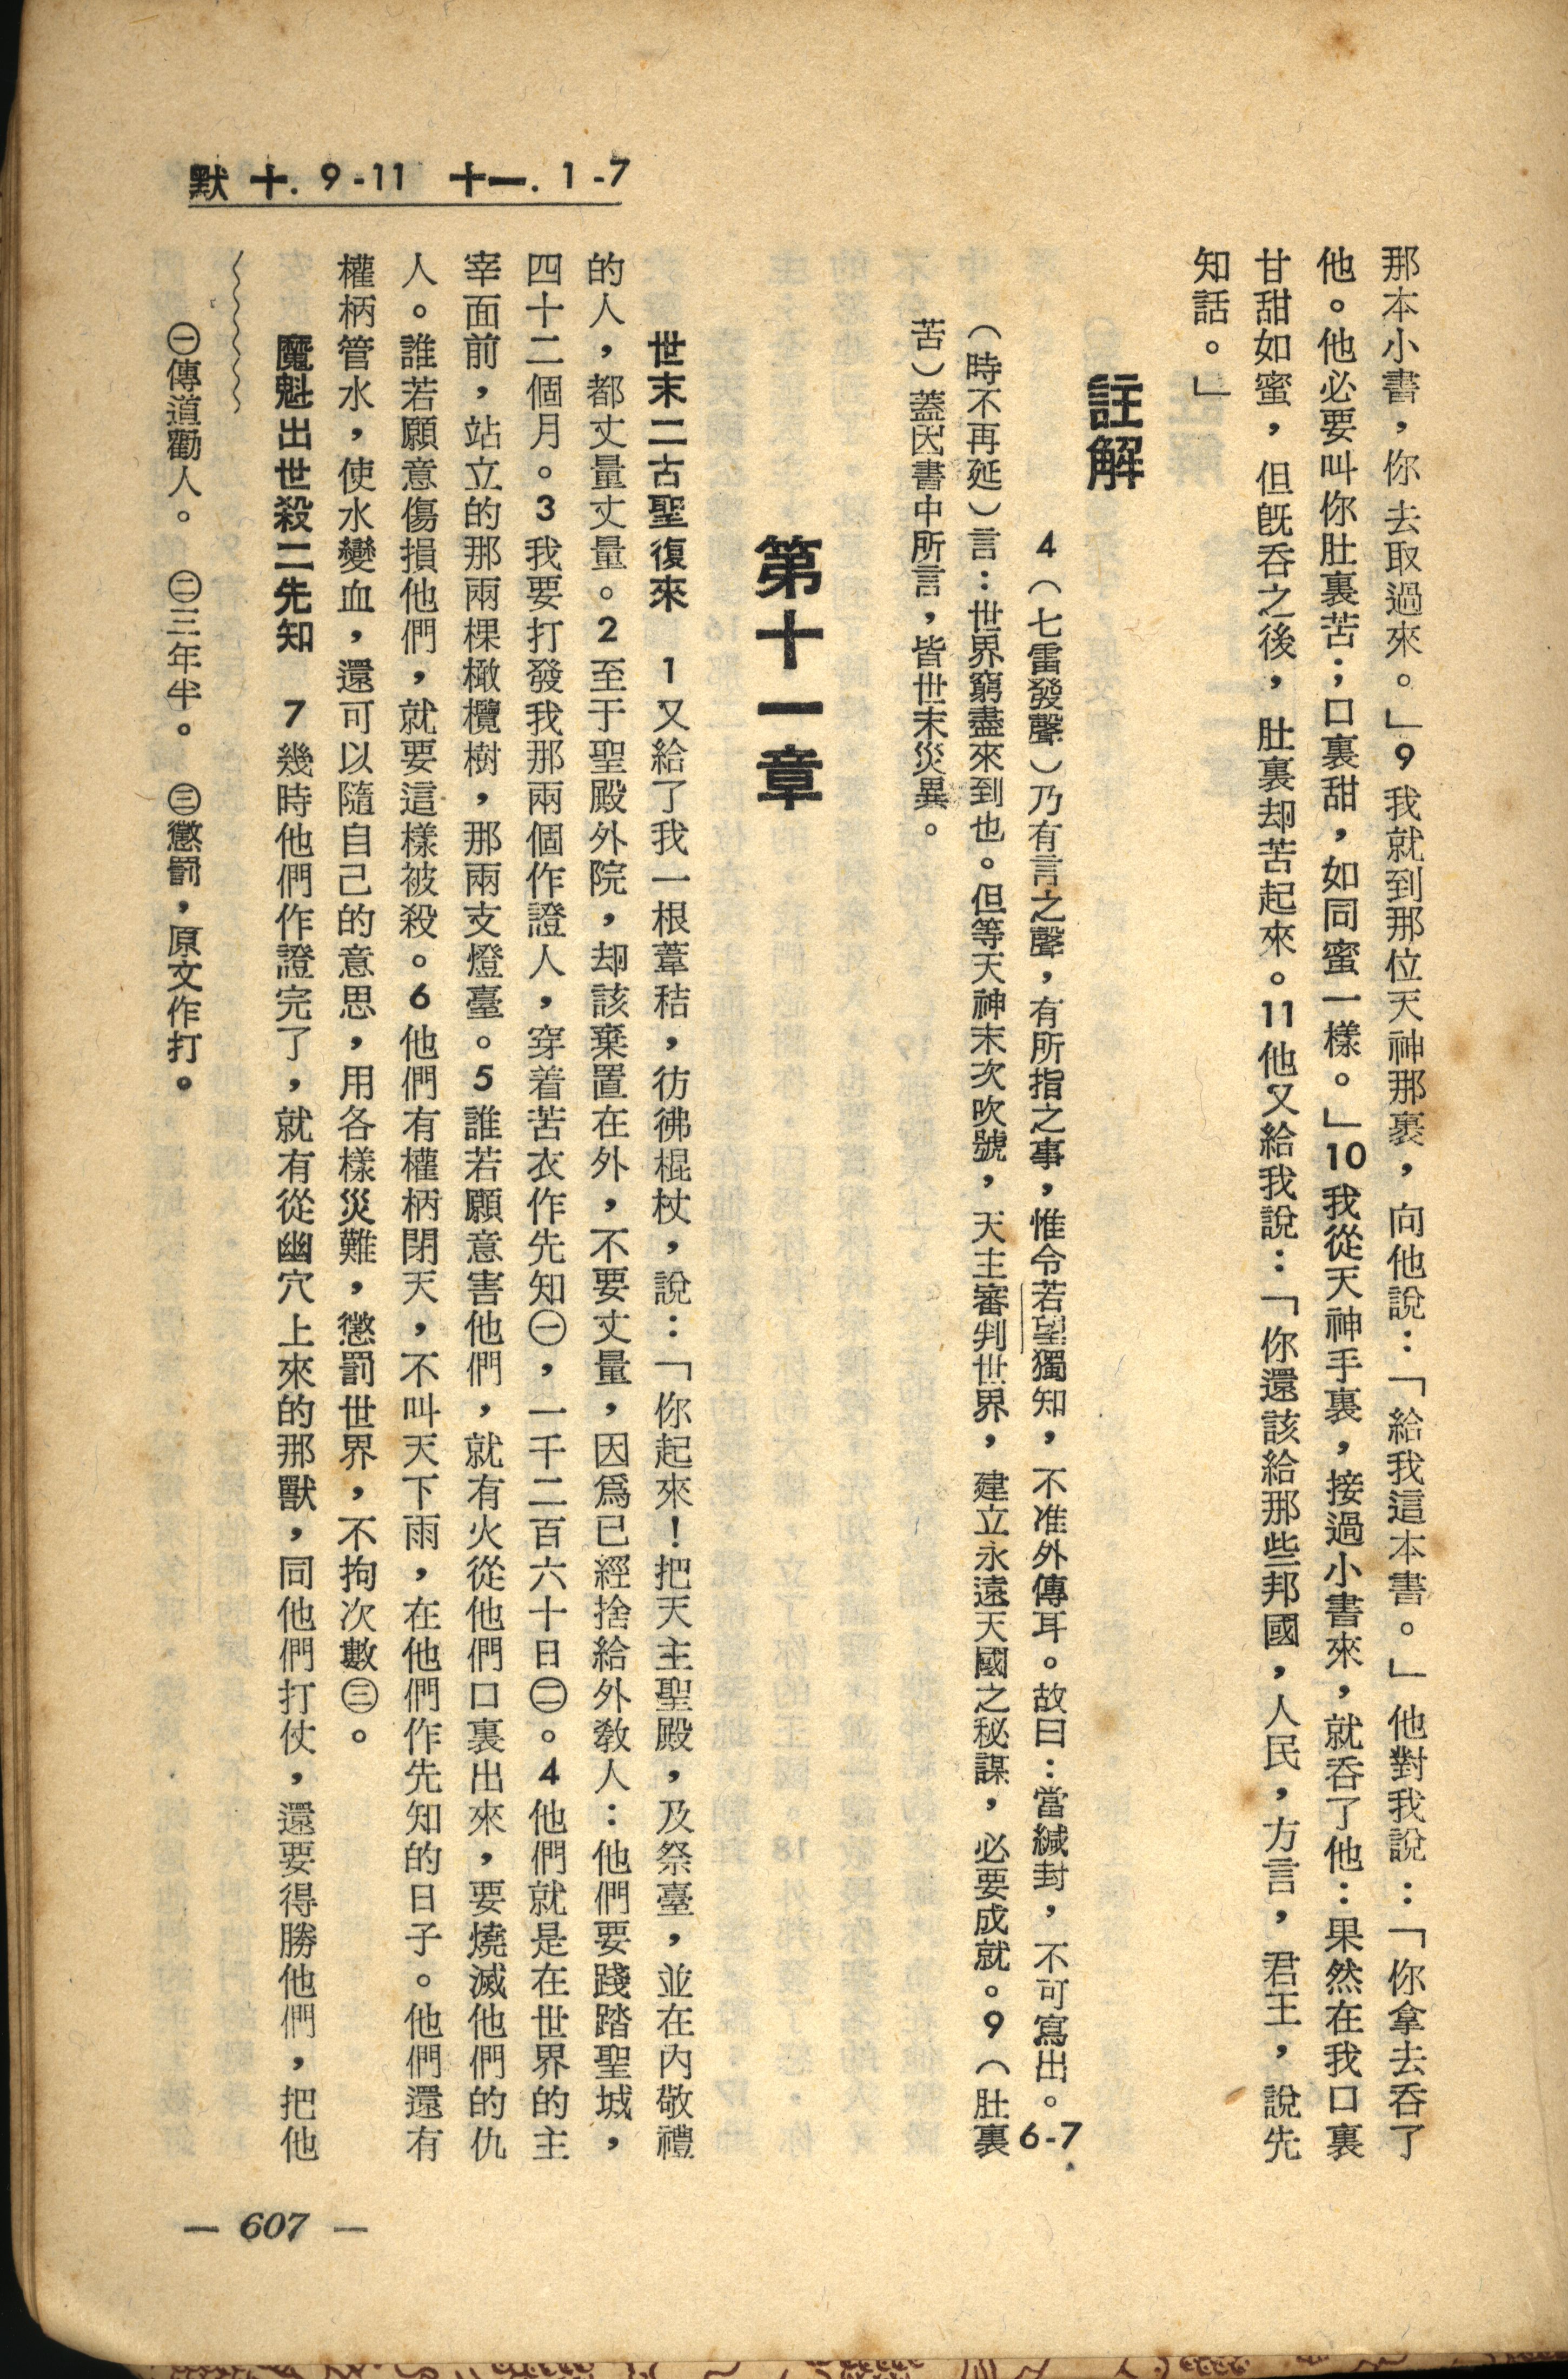 默 十. 9-11 十一. 1-7
那本小書，你去取過來。」9我就到那位天神那裏，向他說：「給我這本書。」他對我說：「你拿去吞了
他。他必要叫你肚裏苦；口裏甜，如同蜜一樣。」10我從天神手裏，接過小書來，就吞了他：果然在我口裏
甘甜如蜜，但旣吞之後，肚裏却苦起來。11他又給我說：「你還該給那些邦國，人民，方言，君王，說先
知話。」
註解
4（七雷發聲）乃有言之聲，有所指之事，惟令若望獨知，不准外傳耳。故曰：當緘封，不可寫出。6-7
（時不再延）言：世界窮盡來到也。但等天神末次吹號，天主審判世界，建立永遠天國之秘謀，必要成就。9（肚裏
苦）蓋因書中所言，皆世末災異。
第十一章
世末二古聖復來 1又給了我一根葦秸，彷彿棍杖，說：「你起來！把天主聖殿，及祭臺，並在內敬禮
的人，都丈量丈量。2至于聖殿外院，却該棄置在外，不要丈量，因爲已經捨給外敎人：他們要踐踏聖城，
四十二個月。3我要打發我那兩個作證人，穿着苦衣作先知㊀，一千二百六十日㊁。4他們就是在世界的主
宰面前，站立的那兩棵橄欖樹，那兩支燈臺。5誰若願意害他們，就有火從他們口裏出來，要燒滅他們的仇
人。誰若願意傷損他們，就要這樣被殺。6他們有權柄閉天，不叫天下雨，在他們作先知的日子。他們還有
權柄管水，使水變血，還可以隨自己的意思，用各樣災難，懲罰世界，不拘次數㊂。
魔魁出世殺二先知 7幾時他們作證完了，就有從幽穴上來的那獸，同他們打仗，還要得勝他們，把他
㊀傳道勸人。 ㊁三年半。 ㊂懲罰，原文作打。
— 607 —